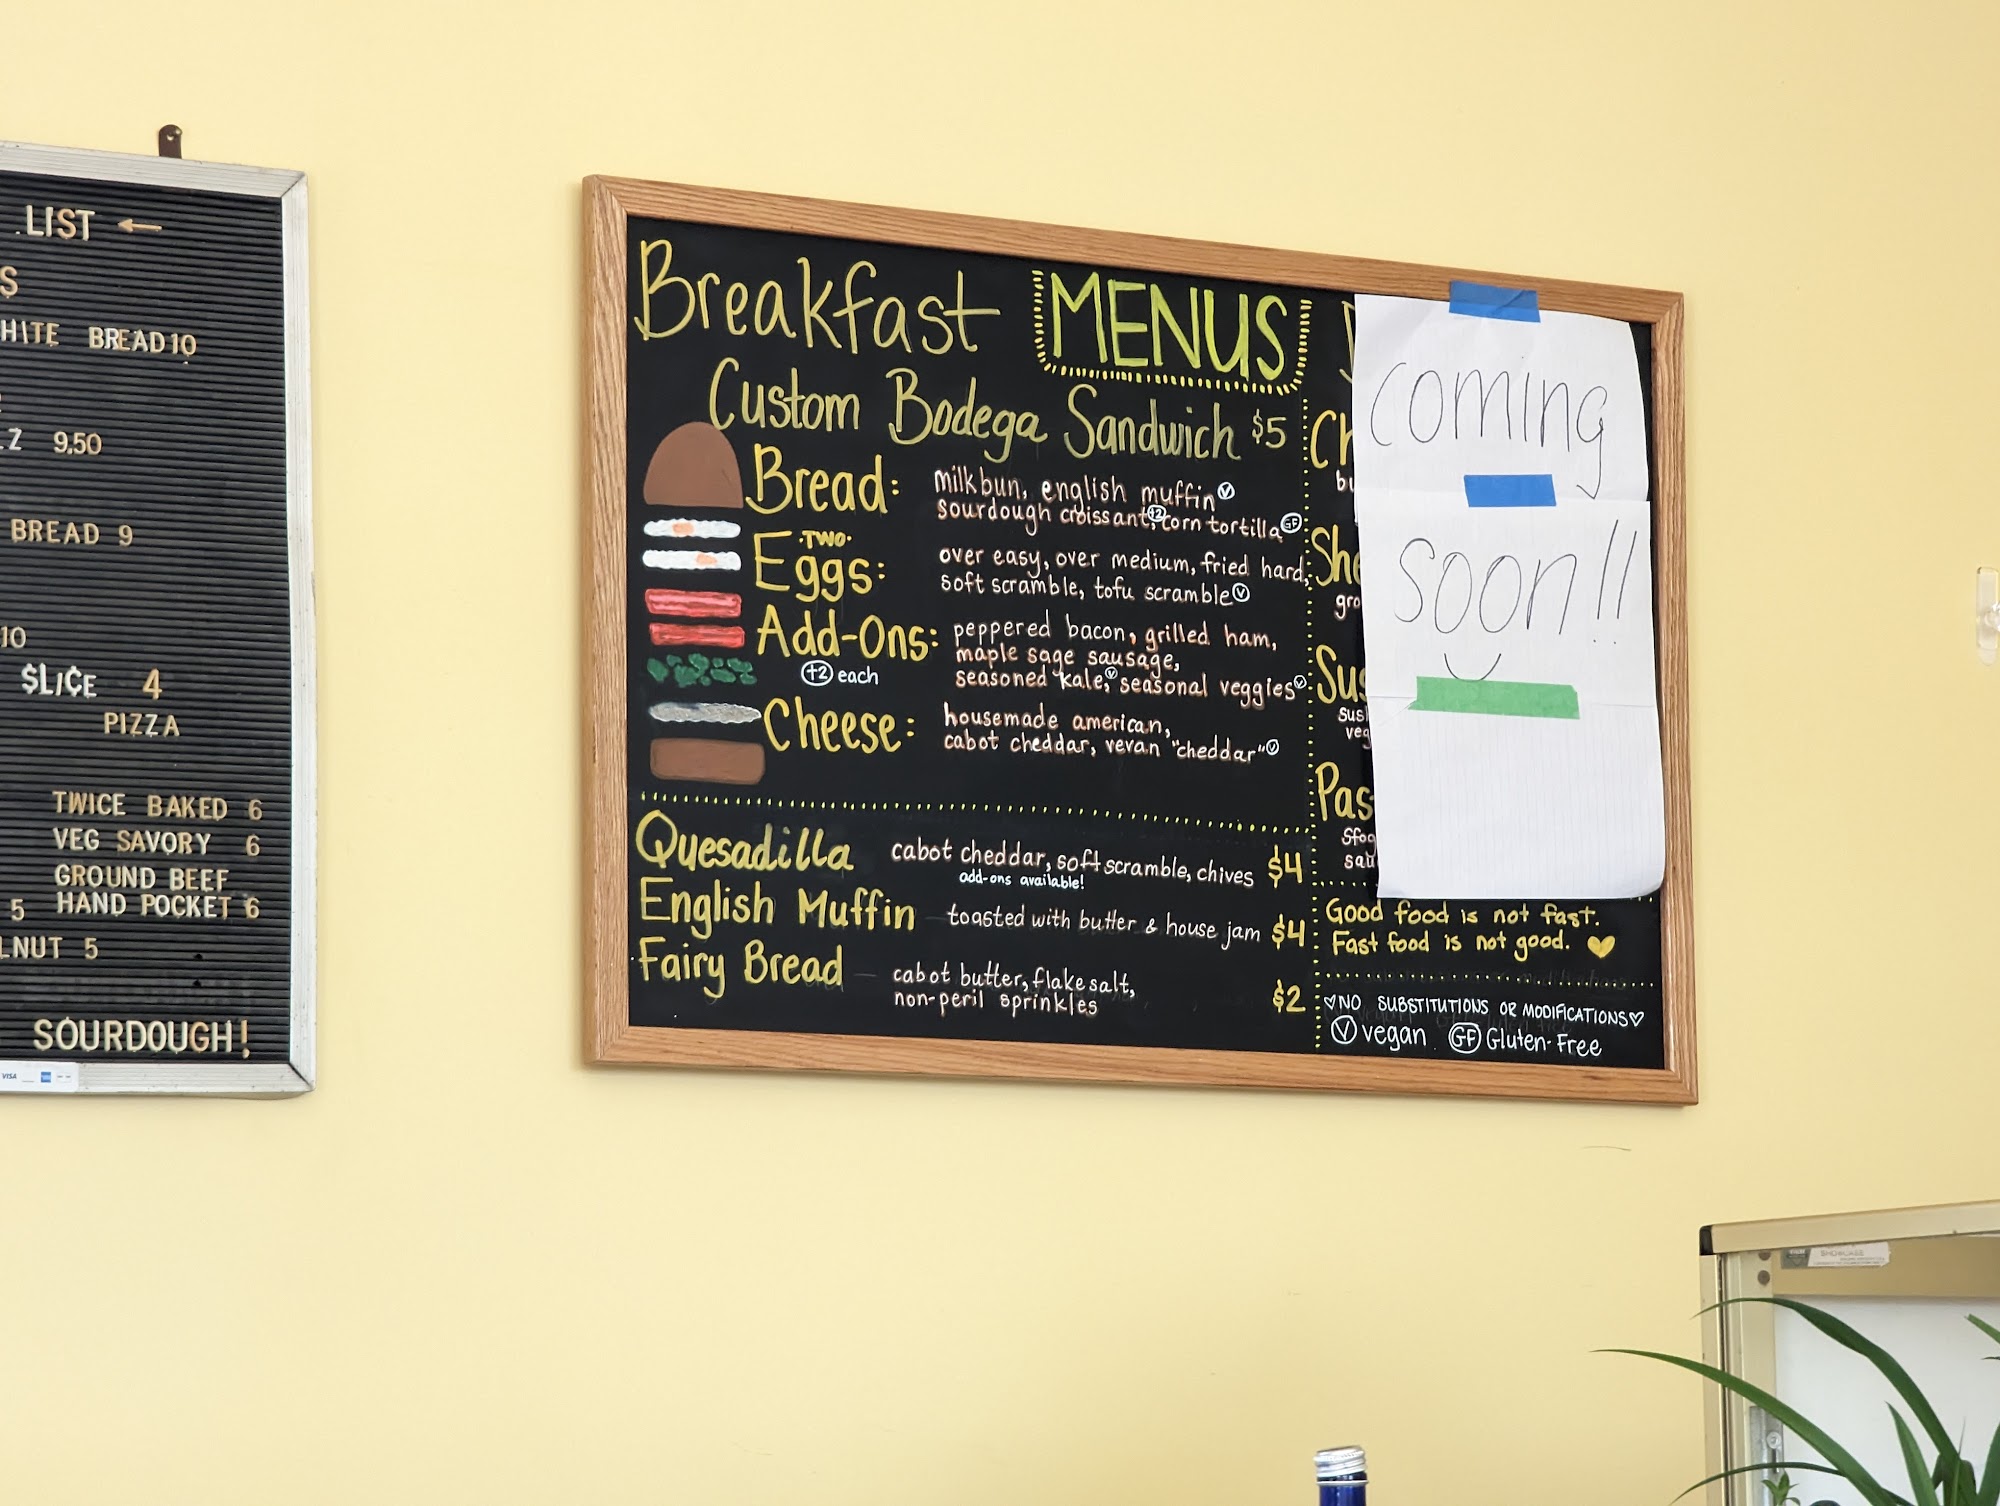 LIST ←
S
HITE BREAD 10
LZ 9.50
BREAD 9
10
SLICE 4
PIZZA
TWICE BAKED 6
VEG SAVORY 6
GROUND BEEF
5 HAND POCKET 6
LNUT 5
SOURDOUGH!
VISA
Breakfast
MENUS
Custom Bodega Sandwich $5
Bread: milkbun, english muffin Ⓥ
sourdough croissant, +2 corn tortilla GF
TWO
Eggs: over easy, over medium, fried hard,
soft scramble, tofu scramble Ⓥ
Add-Ons: peppered bacon, grilled ham,
maple sage sausage,
+2 each
seasoned kale, Ⓥ seasonal veggies Ⓥ
Cheese: housemade american,
cabot cheddar, vevan "cheddar" Ⓥ
Quesadilla cabot cheddar, soft scramble, chives $4
add-ons available!
English Muffin toasted with butter & house jam $4
Fairy Bread — cabot butter, flake salt,
non-peril sprinkles $2
Ch
bu
She
gro
Sus
sus
veg
Pas
sfog
sau
coming
soon!!
Good food is not fast.
Fast food is not good. ♥
♡NO SUBSTITUTIONS OR MODIFICATIONS♡
Ⓥ vegan GF Gluten-Free
SHOWCASE